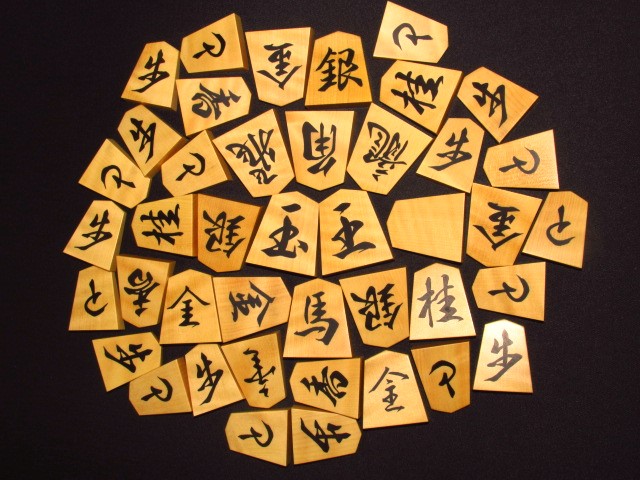 歩
と
金
銀
と
香
桂
歩
歩
と
と
飛
角
龍
歩
と
歩
桂
銀
玉
王
金
と
と
香
全
金
馬
銀
桂
と
歩
と
歩
香
香
全
と
歩
と
歩